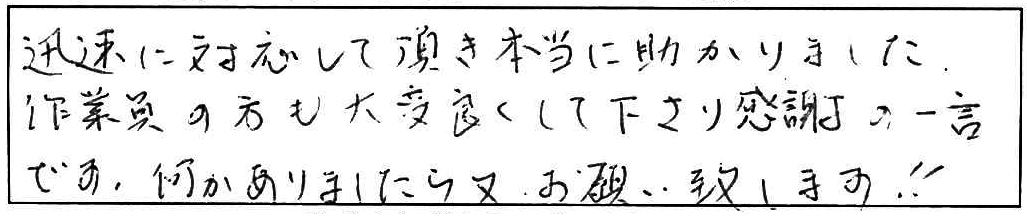 迅速に対応して頂き本当に助かりました.
作業員の方も大変良くして下さり感謝の一言
です. 何かありましたら又お願い致します!!